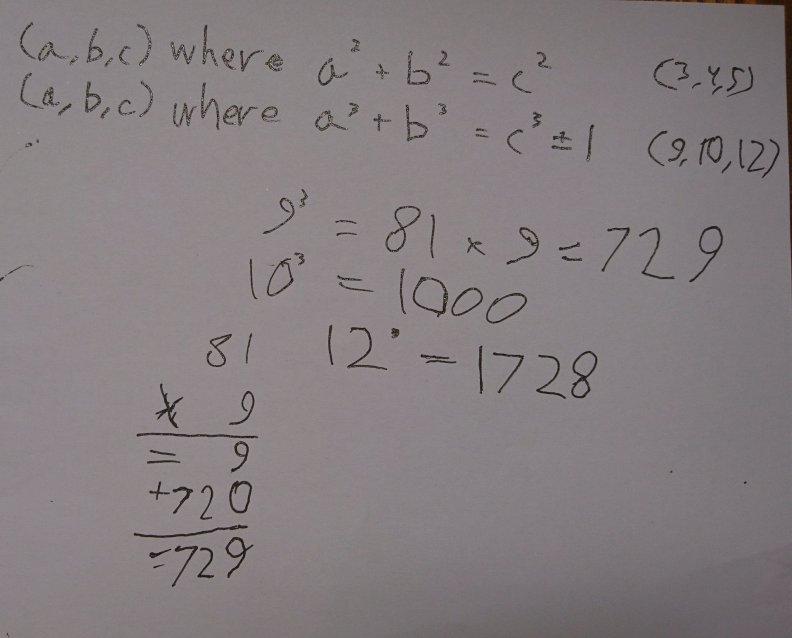 (a,b,c) where a² + b² = c² (3,4,5)
(a,b,c) where a³ + b³ = c³ ± 1 (9,10,12)
9³ = 81 × 9 = 729
10³ = 1000
12³ = 1728
81
× 9
= 9
+720
=729